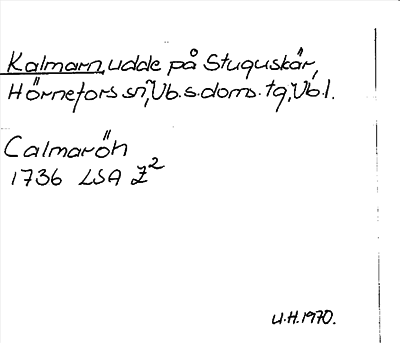 Kalmarn, udde på Stuguskär,
Hörnefors sn, Vb.s.doms. tg, Vb.l.
Calmaröh
1736 LSA Z²
U.H.1970.